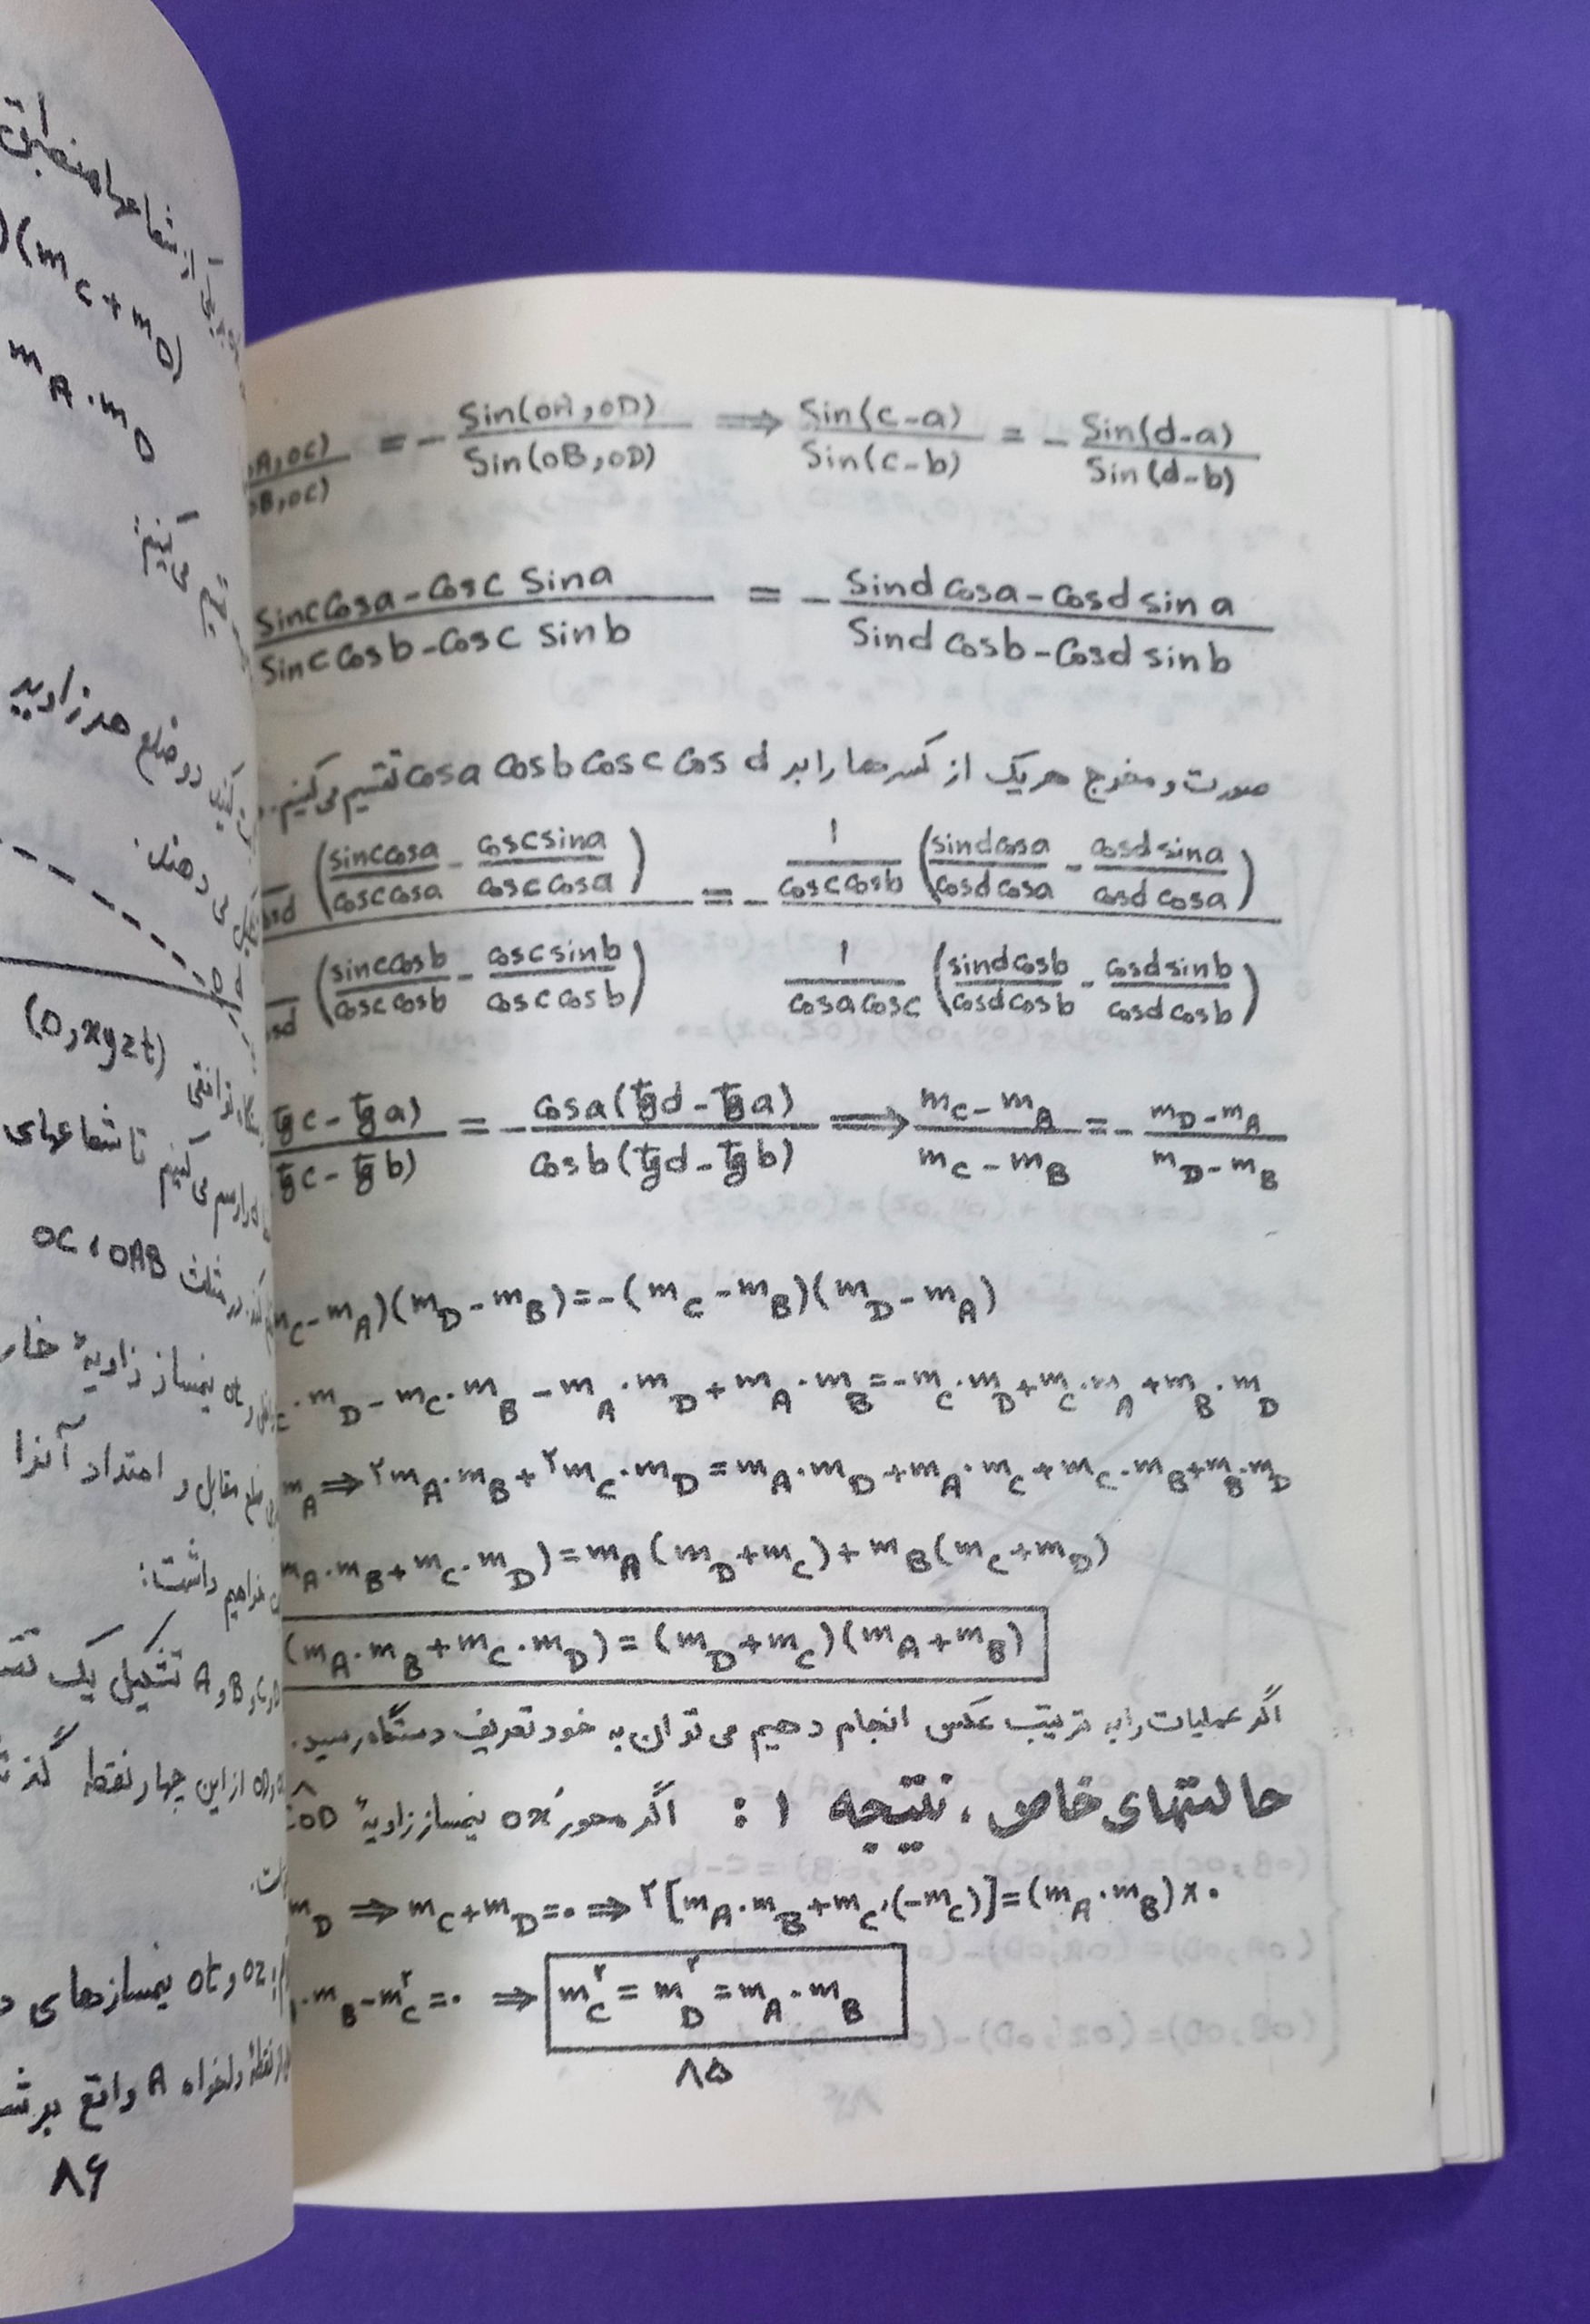 از شعاعها منطبق
(m_C + m_D)
m_A . m_D
می‌کنیم:
دو ضلع هر زاویه
می‌دهند.
(O, xyzt) توافقی
رسم می‌کنیم تا شعاعهای
در مثلث OAB ، OC
ot نیمساز زاویهٔ خار
ضلع مقابل و امتداد آنرا
خواهیم داشت:
A و B و C و D تشکیل یک تقس
از این چهار نقطه گذ
oz و ot نیمسازهای د
نقطهٔ دلخواه A واقع بر ش
۸۶
OA,OC) / OB,OC) = - Sin(OA,OD) / Sin(OB,OD) ⟹ Sin(c-a) / Sin(c-b) = - Sin(d-a) / Sin(d-b)
Sinc Cosa - Cosc Sina / Sinc Cosb - Cosc Sinb = - Sind Cosa - Cosd sina / Sind Cosb - Cosd sinb
صورت و مخرج هر یک از کسرها را بر cosa cosb cosc cos d تقسیم می‌کنیم.
(sinccosa / cosccosa - coscsina / cosccosa) = - ۱ / cosccosb (sindcosa / cosdcosa - cosdsina / cosdcosa)
(sinccosb / cosccosb - coscsinb / cosccosb) ۱ / cosacosc (sindcosb / cosdcosb - cosdsinb / cosdcosb)
tgc - tga) / tgc - tgb) = - cosa(tgd - tga) / cosb(tgd - tgb) ⟹ m_C - m_A / m_C - m_B = - m_D - m_A / m_D - m_B
m_C - m_A)(m_D - m_B) = -(m_C - m_B)(m_D - m_A)
. m_D - m_C . m_B - m_A . m_D + m_A . m_B = - m_C . m_D + m_C . m_A + m_B . m_D
m_A ⟹ ۲m_A . m_B + ۲m_C . m_D = m_A . m_D + m_A . m_C + m_C . m_B + m_B . m_D
m_A . m_B + m_C . m_D) = m_A(m_D + m_C) + m_B(m_C + m_D)
(m_A . m_B + m_C . m_D) = (m_D + m_C)(m_A + m_B)
اگر عملیات را به ترتیب عکس انجام دهیم می‌توان به خود تعریف دستگاه رسید.
حالتهای خاص، نتیجه ۱: اگر محور ox نیمساز زاویهٔ COD
m_D ⟹ m_C + m_D = ۰ ⟹ ۲[m_A . m_B + m_C . (-m_C)] = (m_A . m_B) x ۰
. m_B - m_C^۲ = ۰ ⟹ m_C^۲ = m_D^۲ = m_A . m_B
۸۵